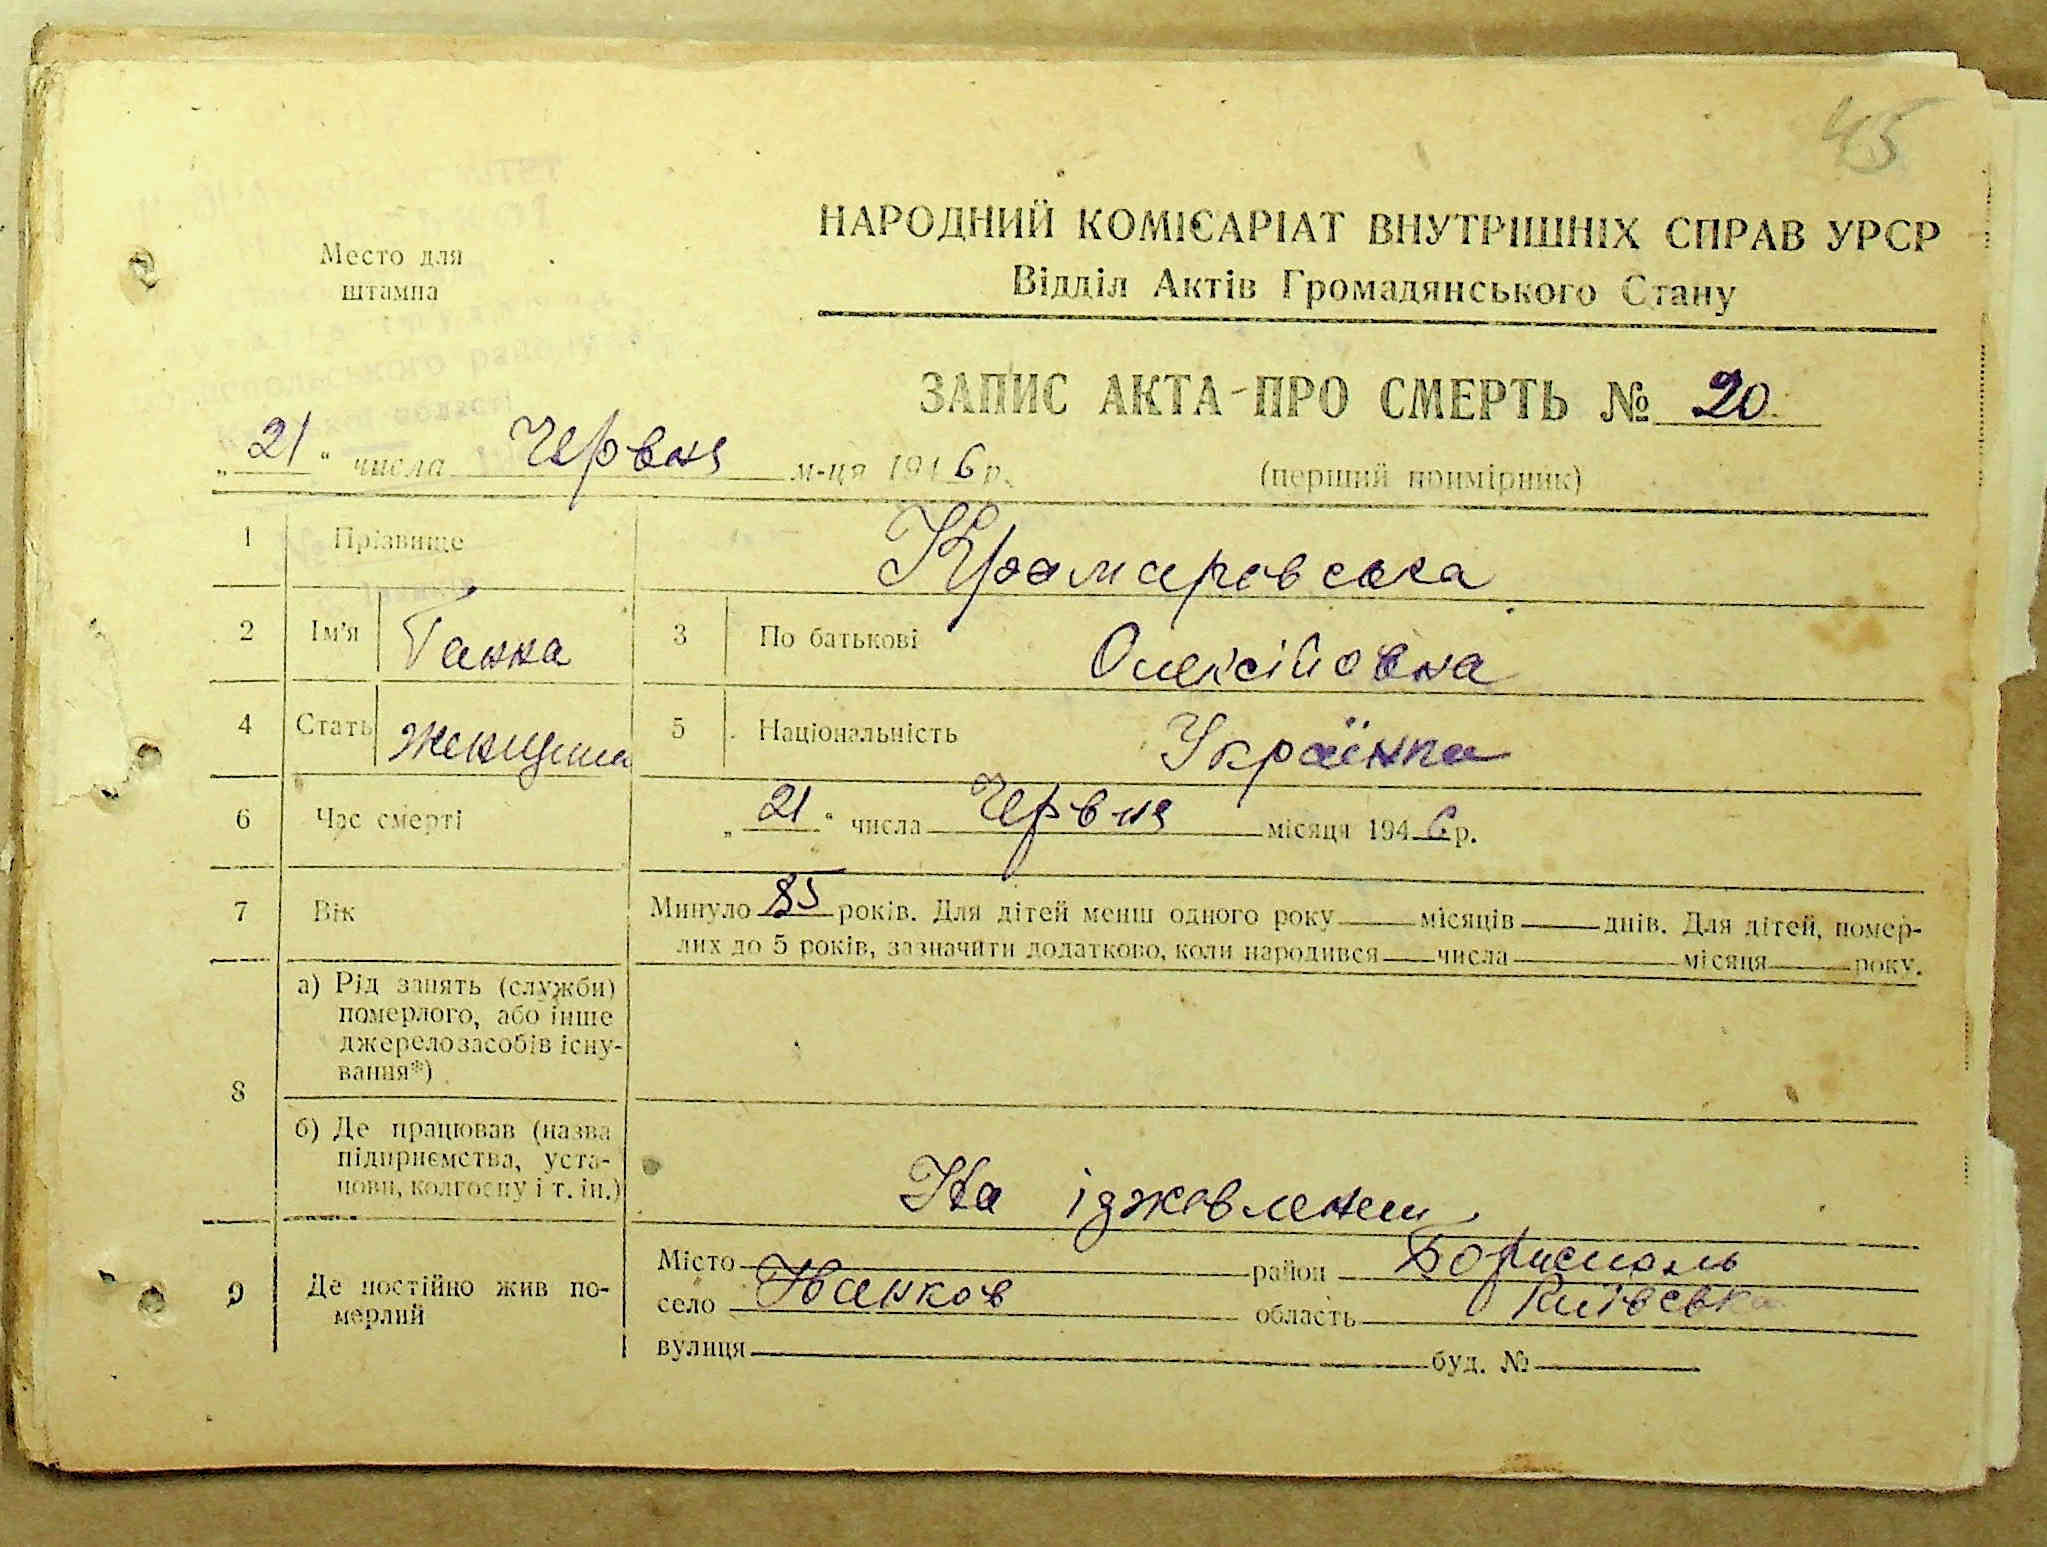 45
Место для
штампа
НАРОДНИЙ КОМІСАРІАТ ВНУТРІШНІХ СПРАВ УРСР
Відділ Актів Громадянського Стану
ЗАПИС АКТА ПРО СМЕРТЬ № 20
„21“ числа Червня м-ця 1946 р.
(перший примірник)
1 Прізвище Крамаровська
2 Ім'я Ганна 3 По батькові Олексійовна
4 Стать женщина 5 Національність Українка
6 Час смерті „21“ числа Червня місяця 1946 р.
7 Вік Минуло 85 років. Для дітей менш одного року місяців днів. Для дітей, помер-
лих до 5 років, зазначити додатково, коли народився числа місяця року.
8 а) Рід занять (служби)
померлого, або інше
джерело засобів існу-
вання*)
б) Де працював (назва
підприємства, уста-
нови, колгоспу і т. ін.)
На іджовлении
9 Де постійно жив по-
мерлий
Місто район Бориспаль
село Іванков область Київська
вулиця буд. №